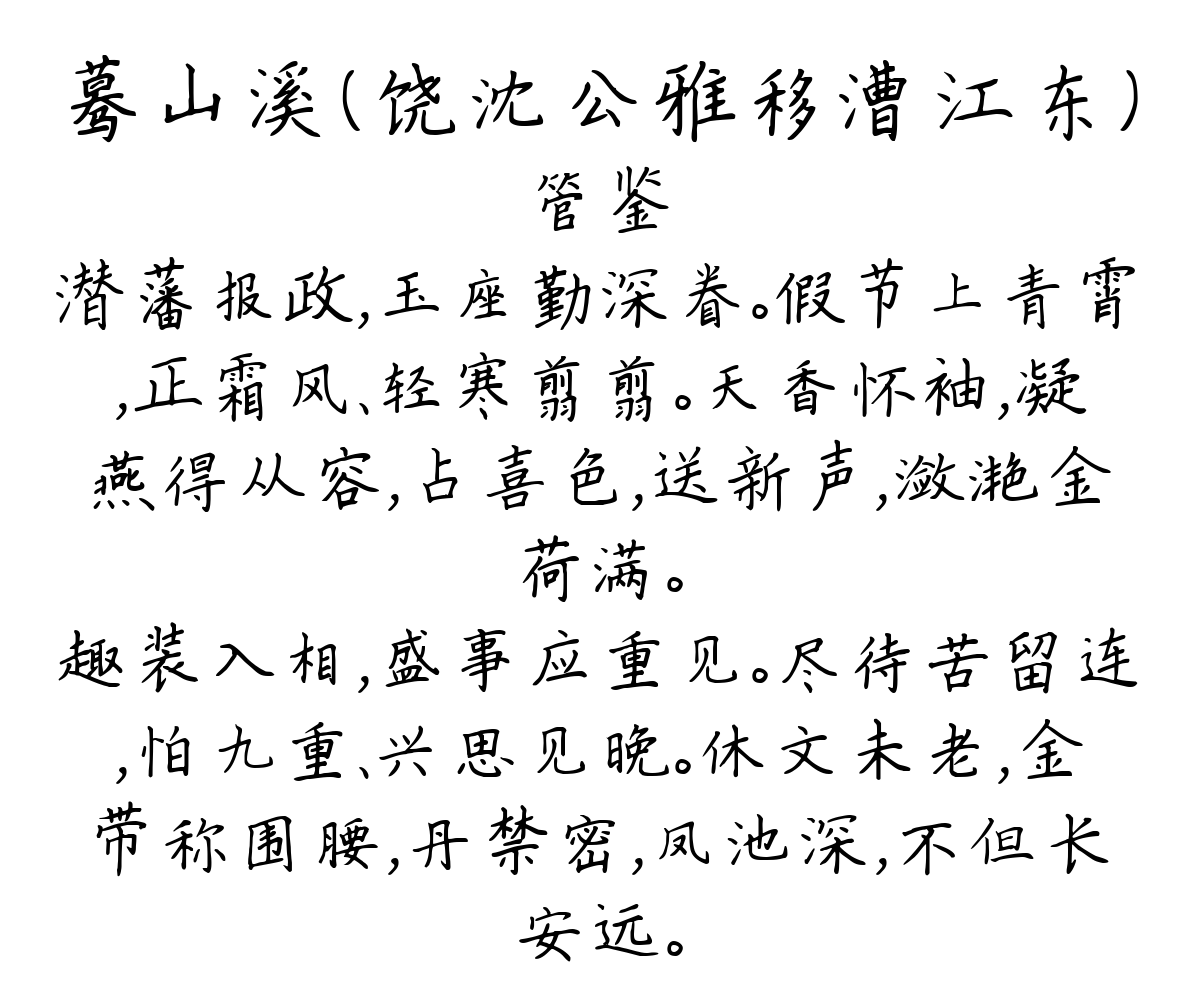 蓦山溪(饶沈公雅移漕江东)
管鉴
潜藩报政,玉座勤深眷。假节上青霄
,正霜风、轻寒翦翦。天香怀袖,凝
燕得从容,占喜色,送新声,潋滟金
荷满。
趣装入相,盛事应重见。尽待苦留连
,怕九重、兴思见晚。休文未老,金
带称围腰,丹禁密,凤池深,不但长
安远。